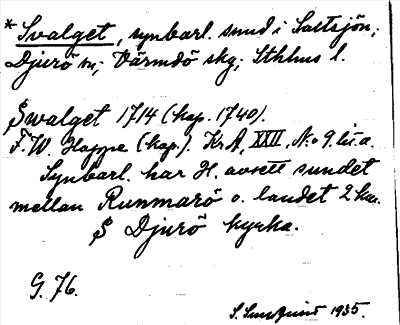 * Svalget, synbarl. sund i Saltsjön;
Djurö sn; Värmdö skg; Sthlms l.
Swalget 1714 (kop. 1740).
F. W. Hoppe (kop.). Kr. A, XXII, No 9 lit. a.
Synbarl. har H. avsett sundet
mellan Runmarö o. landet 2 km.
S Djurö kyrka.
G. 76.
S. Sundquist 1935.